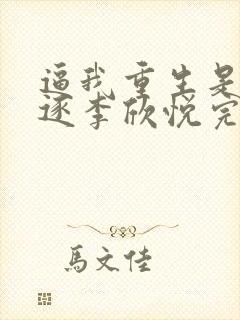 逼我重生是
逐李欣悦完
馬文佳